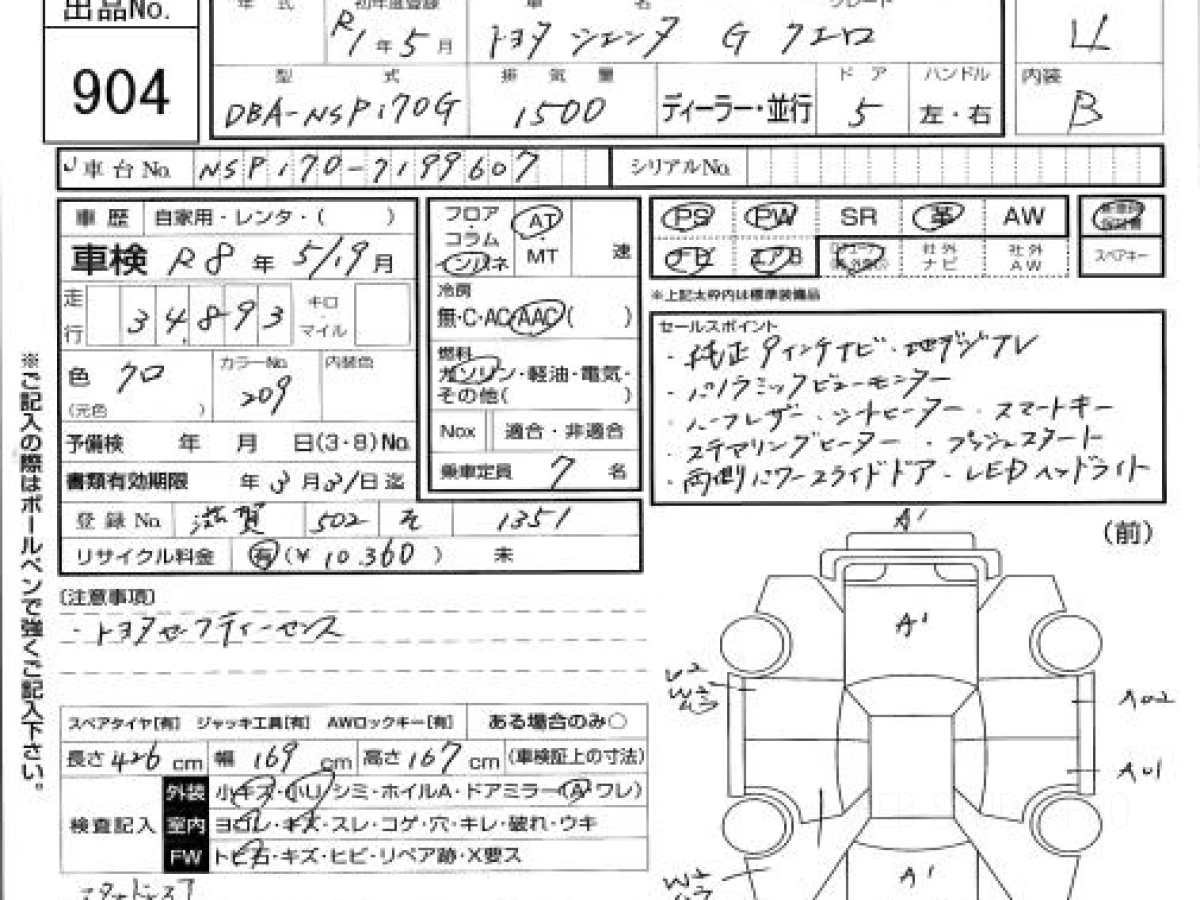 出品No.
904
年 式
初年度登録
R1年5月
車 名
グレード
トヨタ シエンタ G クエロ
4
型 式
DBA-NSP170G
排 気 量
1500
ディーラー・並行
ドア
5
ハンドル
左・右
内装
B
車台No. NSP170-7199607
シリアルNo.
車 歴 自家用・レンタ・( )
車検 R8年5/19月
走行 34,893 キロ・マイル
色 クロ
(元色 )
カラーNo.
209
内装色
予備検 年 月 日(3・8)No.
書類有効期限 年3月31日迄
登録No. 滋賀 502 そ 1351
リサイクル料金 有(¥ 10.360 ) 未
フロア・コラム・インパネ
AT・MT
速
冷房
無・C・AC・AAC( )
燃料
ガソリン・軽油・電気・
その他( )
Nox 適合・非適合
乗車定員 7 名
PS PW SR 革 AW
ナビ エアB
社外ナビ
社外AW
スペアキー
※上記太枠内は標準装備品
セールスポイント
・純正9インチナビ・地デジTV
・パノラミックビューモニター
・ハーフレザー・シートヒーター・スマートキー
・ステアリングヒーター・プッシュスタート
・両側パワースライドドア・LEDヘッドライト
※ご記入の際はボールペンで強くご記入下さい。
〔注意事項〕
・トヨタセーフティーセンス
スペアタイヤ[有] ジャッキ工具[有] AWロックキー[有] ある場合のみ○
長さ426cm 幅169cm 高さ167cm (車検証上の寸法)
検査記入
外装 小キズ・小凹・シミ・ホイルA・ドアミラー(A・ワレ)
室内 ヨゴレ・キズ・スレ・コゲ・穴・キレ・破れ・ウキ
FW トビ石・キズ・ヒビ・リペア跡・X要ス
(前)
A1
A1
A02
A01
A1
W2